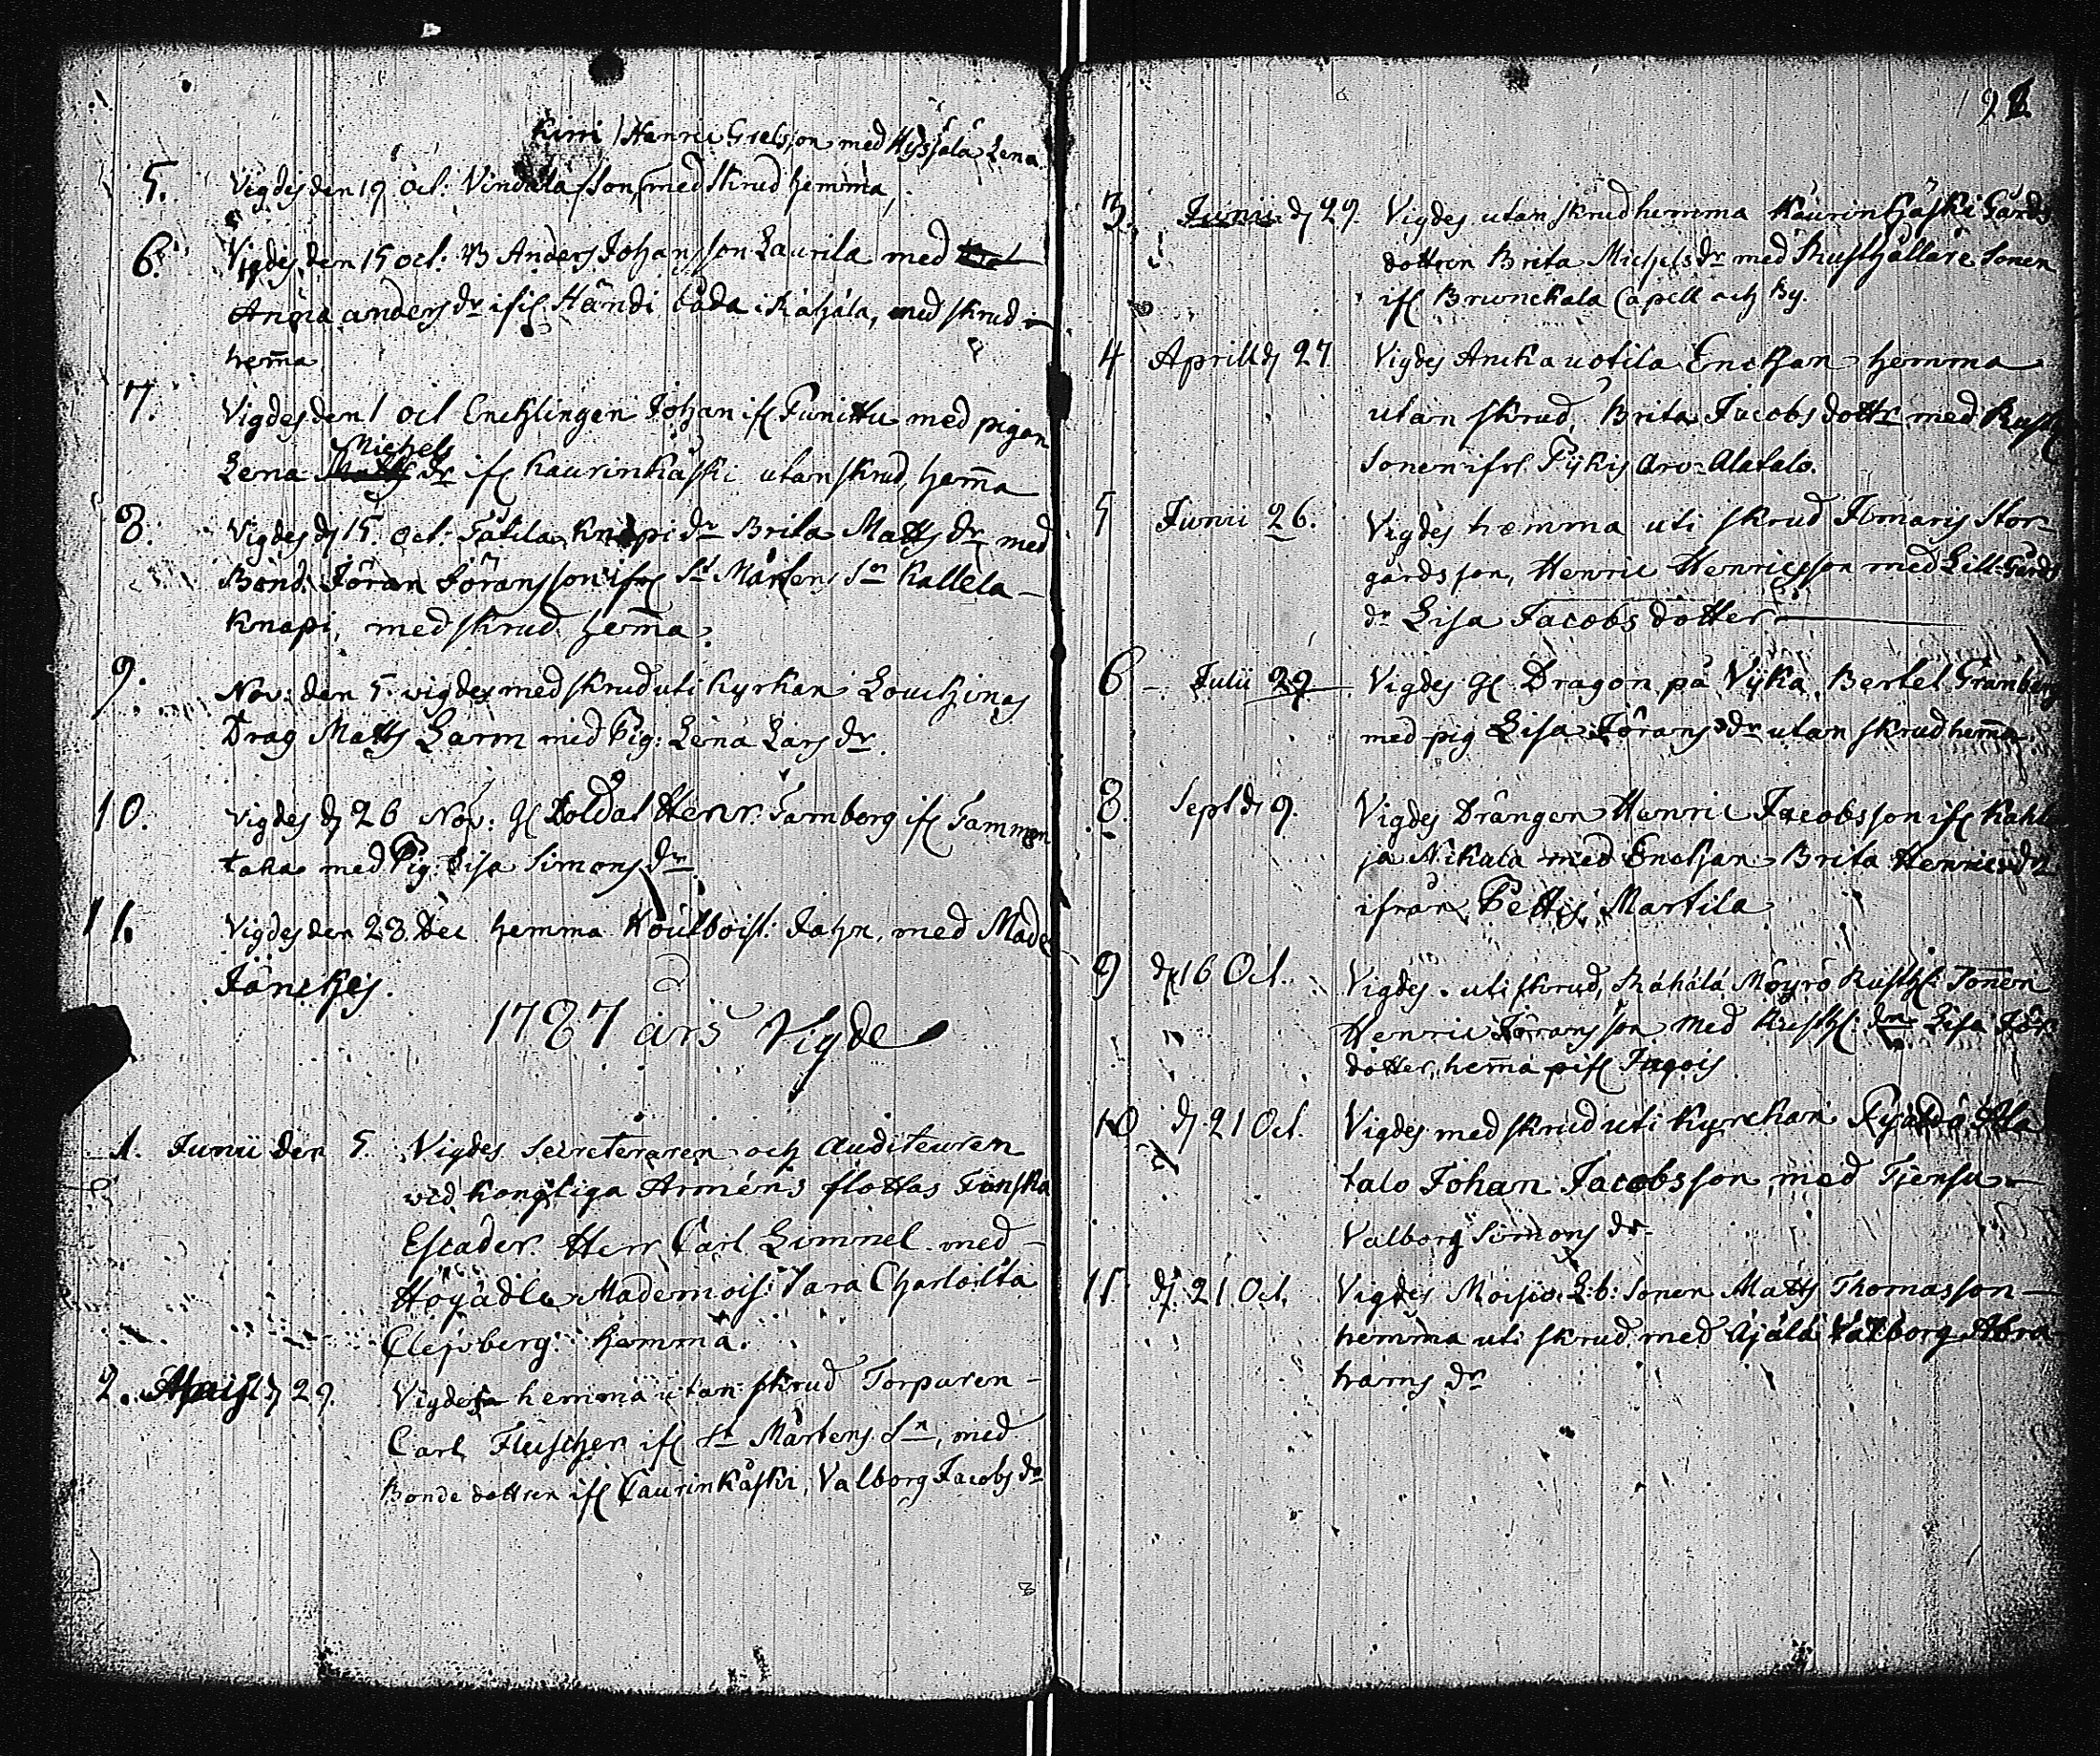 Kirri / Henric Grelsson med Hyssälä Lena
5. Vigdes den 19 Oct: son, med skrud hemma,
6. Vigdes den 15 oct: Anders Johansson Laurila med
Anna anders dr ifr Händi båda i Kahala, med skrud
hem̄a
7. Vigdes den 1 oct Enchlingen Johan ifr Funittu med pigan
Michels
Lena dr ifr Kaurinkäski utan skrud, hem̄a
8. Vigdes d 15. Oct: Tåtila Knapi dr Brita Matts dr med
Bond. Jöran Jöransson ifr St Mårtens Sn Kallela
Knapi, med skrud hem̄a.
9. Nov: den 5. wigdes med skrud uti Kyrkan
Drag Matts Larm med Pig: Lena Lars dr.
10. Vigdes d 26 Nov: Gl Soldat Henr. Tamberg ifr Tammen
taka med Pig. Lisa Simons dr
11. Vigdes den 28. Dec hemma Jahn, med Made
Jänches.
1787 års Vigde
1. Junii den 5. Vigdes Secreteraren och Auditeuren
wid Kongliga Arméns flottas Finska
Escader. Herr Carl Limmel med
Högädle Mademois: Sara Charlotta
Clejsberg hemma.
2. d 29. Vigdes hemma utan skrud Torparen
Carl Fleischer ifr St Mårtens Sn, med
Bonde dottren ifr Caurinkäski, Valborg Jacobs dr
92
3. Junii d 29. Vigdes utan skrud hemma Kaurinkäski Gårds
dottren Brita Michels dr med Rusthållare Sonen
ifr Brunckala Capell och By.
4 Aprill d 27 Vigdes Anika uotila Enckan hemma
utan skrud, Brita Jacobs dottr med Rusth
Sonen ifrå Pijkis Arv-Alatalo.
5 Junii 26. Vigdes hemma uti skrud Ilmaris Stor
gårds son, Henric Henricsson med Lill-Gårds
dr Lisa Jacobs dotter
6 - Julii 29. Vigdes Gl Dragon på Vijka, Bertel Granberg
med pig Lisa Jörans dr utan skrud hem̄a
8. Sept d 9. Vigdes Drängen Henric Jacobsson ifr Kahl
ja Nikala med Enckan Brita Henrics dr
ifrån Pettis Martila
9 d 16 Oct. Vigdes uti skrud, Rahala Möyrö Rusth: Sonen
Henric Jöransson med Rusth: Lisa Jör
dotter, hem̄a
10 d 21 Oct. Vigdes med skrud uti Kyrckan Ala
talo Johan Jacobsson, med Tjensu
Valborg Simons dr.
11. d 21 Oct. Vigdes Moisio L:b: Sonen Matts Thomasson
hemma uti skrud med Ajala Valborg Abra
hams dr